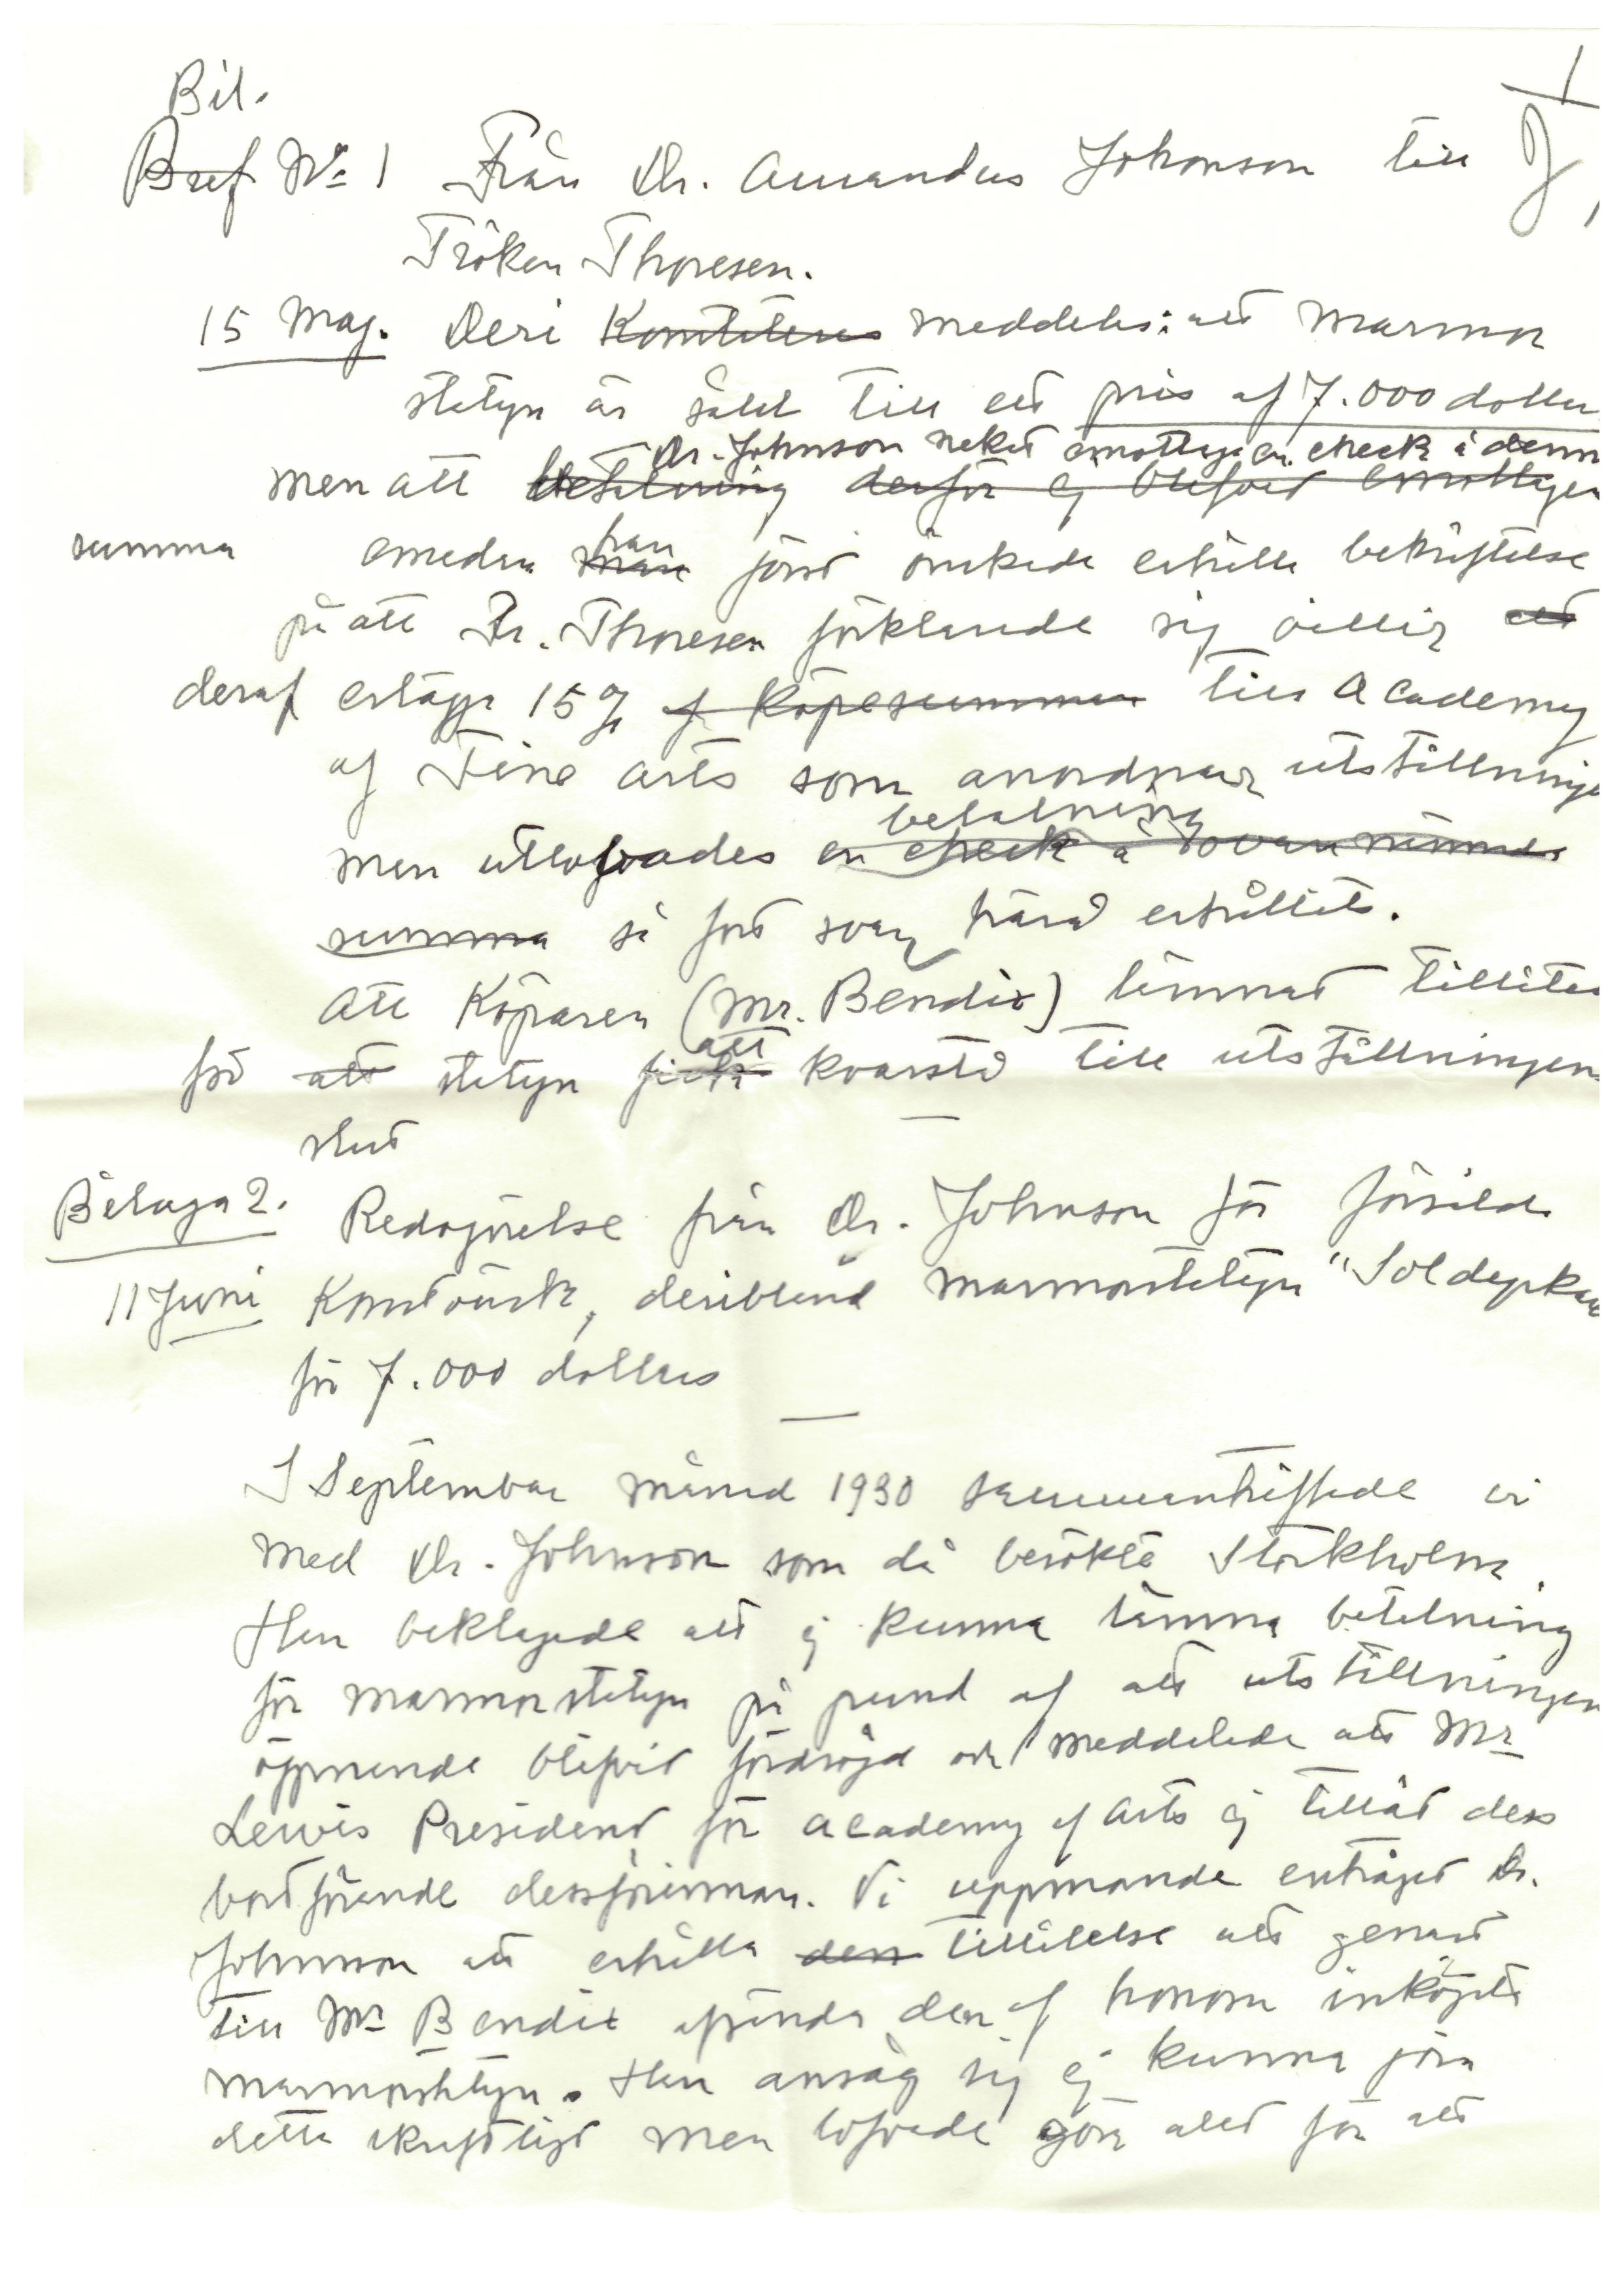 Bil.
1
Bref No 1 Från Dr. Amandus Johonson till
Fröken Thoresen.
15 Maj. Deri Komiteteres meddeles: att marmor
statyn är såld till ett pris af 7.000 dollar
Dr. Johnson nekat emottaga en check å denna
men att betalning derför ej blifvit emottagen
summa emedan man han först önskade erhålla bekräftelse
på att Fr. Thoresen förklarade sig villig att
deraf erlägga 15% af köpesumman till Academy
of Fine Arts som anordnar utställningen
betalning
men utlofvades en check å ovan nämnde
summa så fort svar härå erhållits.
Att Köparen (Mr. Bendix) lämnat tillåtelse
för att statyn fick att kvarstå till utställningens
slut
Bilaga 2. Redogörelse från Dr. Johnson för försålda
11 Juni Konstverk, deribland marmorstatyn "Soldyrkan
för 7.000 dollars
I September månad 1930 sammanträffade vi
med Dr. Johnson som då besökte Stockholm.
Han beklagade att ej kunna lämna betalning
för marmorstatyn på grund af att utställningens
öppnande blifvit fördröjd och meddelade att Mr
Lewis President för Academy of Arts ej tillåt dess
bortförande dessförinnan. Vi uppmanade enträget Dr.
Johnson att erhålla dess tillåtelse att genast
till Mr Bendix afsända den af honom inköpta
marmorstatyn. Han ansåg sig ej kunna göra
detta skriftligt men lofvade göra allt för att